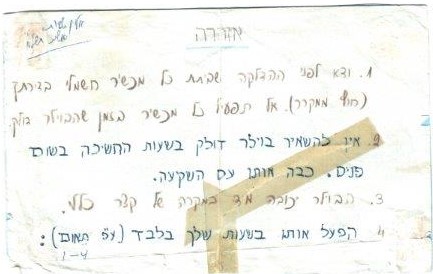 אזהרה
1. ודא לפני ההדלקה שכיבית כל מכשיר חשמלי בדירתך
(חוץ ממקרר). אל תפעיל כל מכשיר בזמן שהבוילר דולק
2. אין להשאיר בוילר דולק בשעות החשיכה בשום
פנים. כבה אותו עם השקיעה.
3. הבוילר יכובה מיד במקרה של קצר כללי.
4 הפעל אותו בשעות שלך בלבד (עפ תאום):
1-4